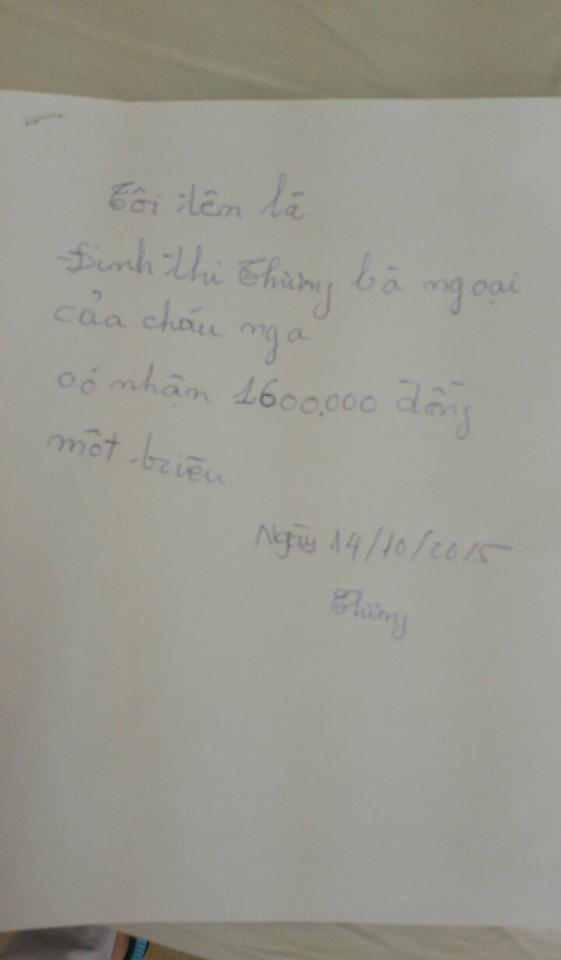 Tôi tên là
Đinh thị Thừng bà ngoại
của cháu nga
có nhận 1600.000 đồng
một triệu
Ngày 14/10/2015
Thừng